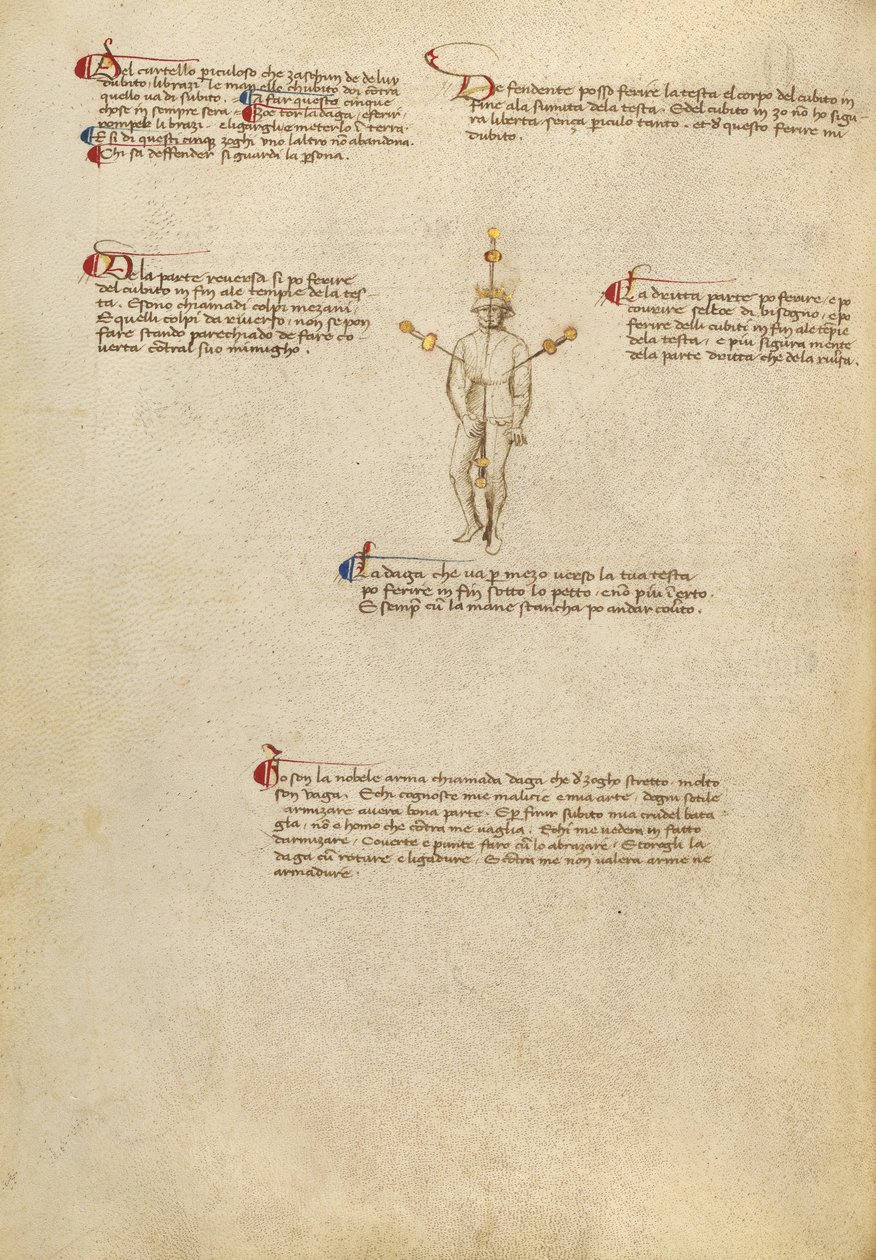 Del cortello piculoso che zaschun de de luy
dubito, li brazi, le man ello chubito doi cōtra
quello va di subito. A far questo cinque
chose in sempre serai. Zoe tor la daga, e ferir,
rompele li brazi, e ligargli, e meterlo ī terra.
E si di questi cinq3 zoghi vno laltro nō abandona.
Chi sa deffender si guardi la psona.
De fendente posso ferire la testa el corpo del cubito in
fine ala sumita dela testa. E del cubito in zo nō ho sigu-
ra liberta senza piculo tanto. et d' questo ferire mi
dubito.
De la parte reuersa si po ferire
del cubito in fin ale tempie de la tes-
ta. E sono chiamadi colpi mezani,
E quelli colpi da riuerso, non se pon
fare stando parechiado de fare co-
uerta cōtral suo inimigho.
La dritta parte po ferire, e po
courire se ltoe di bisogno, e po
ferire delli cubiti in fin ale tēpie
dela testa, e più sigura mente
dela parte dritta, che dela riu'sa.
La daga che va p mezo verso la tua testa
po ferire in fin sotto lo petto, e nō piu ī erto.
E semp cū la mane stancha po andar co'uto.
Io son la nobele arma chiamada daga che d' zogho stretto, molto
son vaga. E chi cognosce mie malicie e mia arte, dogni sotile
armizare auera bona parte. E p finir subito mia crudel bata
gla, nō e homo che cōtra me vaglia. E chi me vedera in fatto
darmizare, Couerte e punte faro cū lo abrazare, E torogli la
daga cū roture e ligadure, E cōtra me non valera arme ne
armadure.